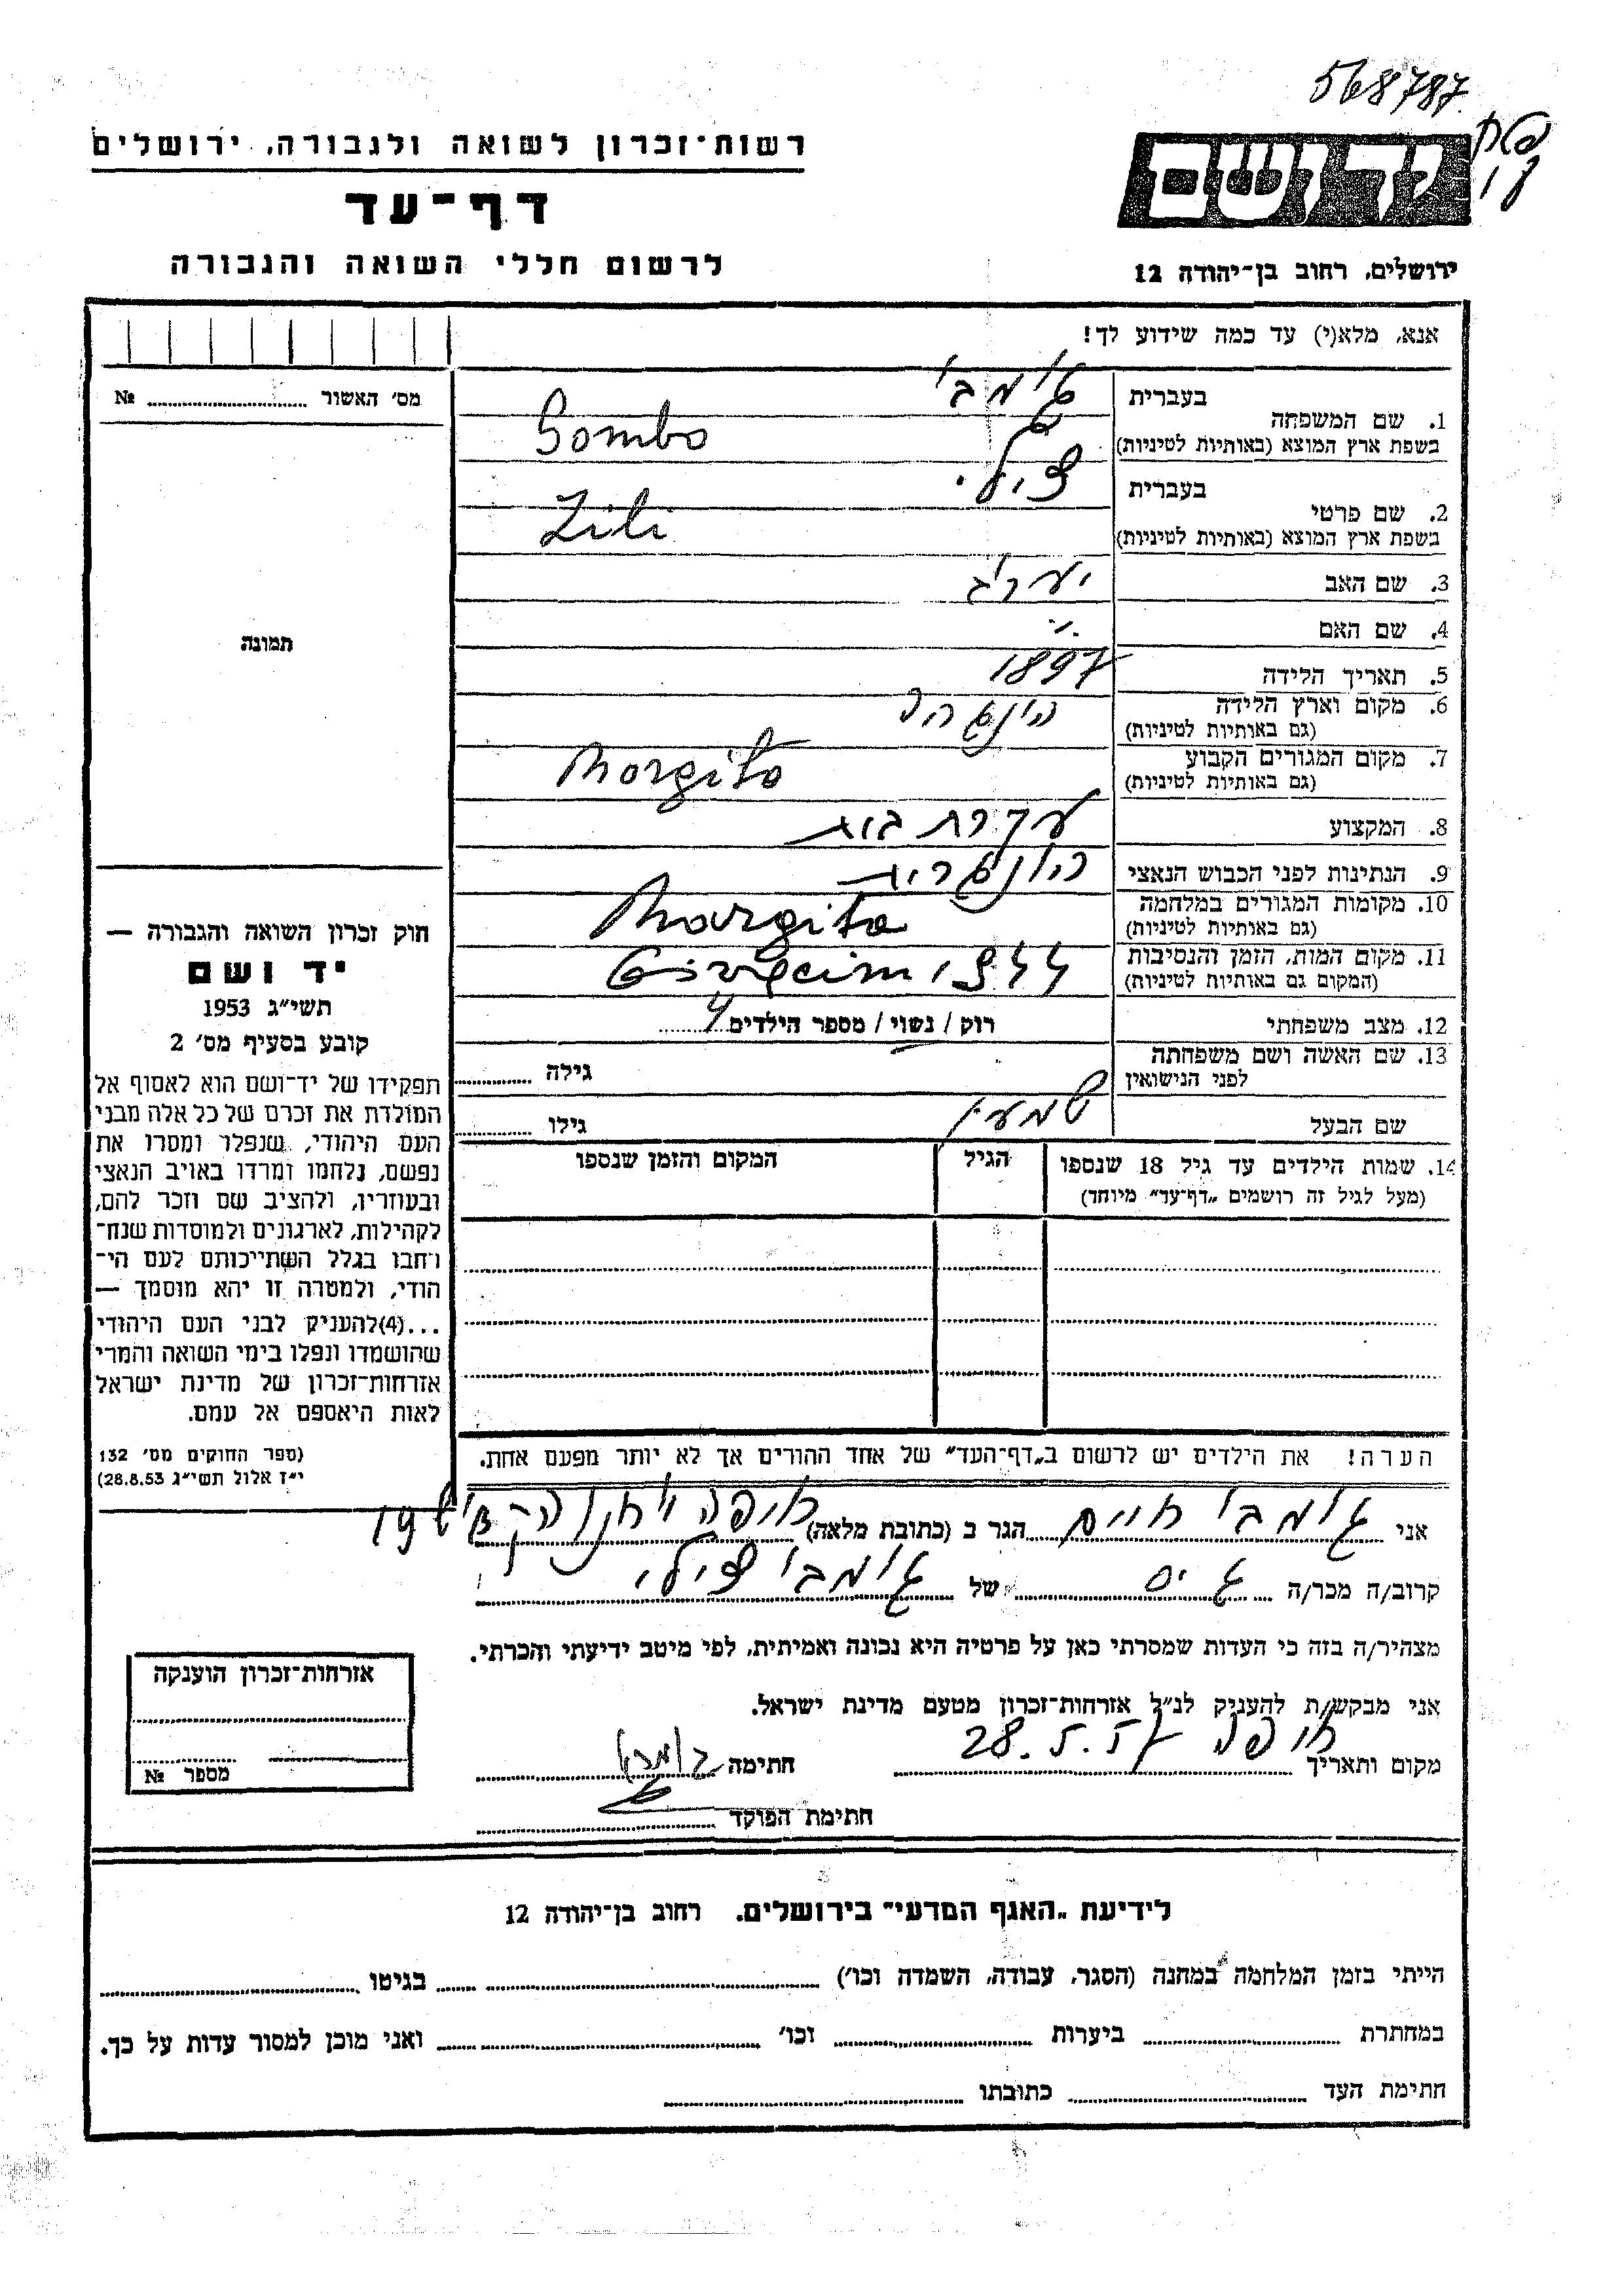 568787
רשות־זכרון לשואה ולגבורה, ירושלים
יד ושם
דף־עד
לרשום חללי השואה והגבורה
ירושלים, רחוב בן־יהודה 12
אנא, מלא(י) עד כמה שידוע לך!
מס׳ האשור № 
1. שם המשפחה
בעברית גומבו
בשפת ארץ המוצא (באותיות לטיניות) Gombo
2. שם פרטי
בעברית צילי
בשפת ארץ המוצא (באותיות לטיניות) Zili
3. שם האב
4. שם האם
5. תאריך הלידה 1897
6. מקום וארץ הלידה
(גם באותיות לטיניות)
7. מקום המגורים הקבוע Margita
(גם באותיות לטיניות)
8. המקצוע עקרת בית
9. הנתינות לפני הכבוש הנאצי הונגרית
10. מקומות המגורים במלחמה Margita
(גם באותיות לטיניות)
11. מקום המות, הזמן והנסיבות 1944
(המקום גם באותיות לטיניות)
12. מצב משפחתי רוק / נשוי / מספר הילדים 4
13. שם האשה ושם משפחתה
לפני הנישואין גילה
שם הבעל שמעון גילו
14. שמות הילדים עד גיל 18 שנספו הגיל המקום והזמן שנספו
(מעל לגיל זה רושמים „דף־עד״ מיוחד)
תמונה
חוק זכרון השואה והגבורה —
יד ושם
תשי״ג 1953
קובע בסעיף מס׳ 2
תפקידו של יד־ושם הוא לאסוף אל
המולדת את זכרם של כל אלה מבני
העם היהודי, שנפלו ומסרו את
נפשם, נלחמו ומרדו באויב הנאצי
ובעוזריו, ולהציב שם וזכר להם,
לקהילות, לארגונים ולמוסדות שנח־
רבו בגלל השתייכותם לעם הי־
הודי, ולמטרה זו יהא מוסמך —
...(4)להעניק לבני העם היהודי
שהושמדו ונפלו בימי השואה והמרי
אזרחות־זכרון של מדינת ישראל
לאות היאספם אל עמם.
(ספר החוקים מס׳ 132
י״ז אלול תשי״ג 28.8.53)
הערה! את הילדים יש לרשום ב„דף־העד״ של אחד ההורים אך לא יותר מפעם אחת.
אני גומבו חיים הגר ב (כתובת מלאה) חיפה
קרוב/ה מכר/ה גיס של גומבו צילי
מצהיר/ה בזה כי העדות שמסרתי כאן על פרטיה היא נכונה ואמיתית, לפי מיטב ידיעתי והכרתי.
אני מבקש/ת להעניק לנ״ל אזרחות־זכרון מטעם מדינת ישראל.
מקום ותאריך חיפה 28.5.57 חתימה
חתימת הפוקד
אזרחות־זכרון הוענקה
מספר №
לידיעת „האגף המדעי״ בירושלים, רחוב בן־יהודה 12
הייתי בזמן המלחמה במחנה (הסגר, עבודה, השמדה וכו׳) בגיטו
במחתרת ביערות וכו׳ ואני מוכן למסור עדות על כך.
חתימת העד כתובתו